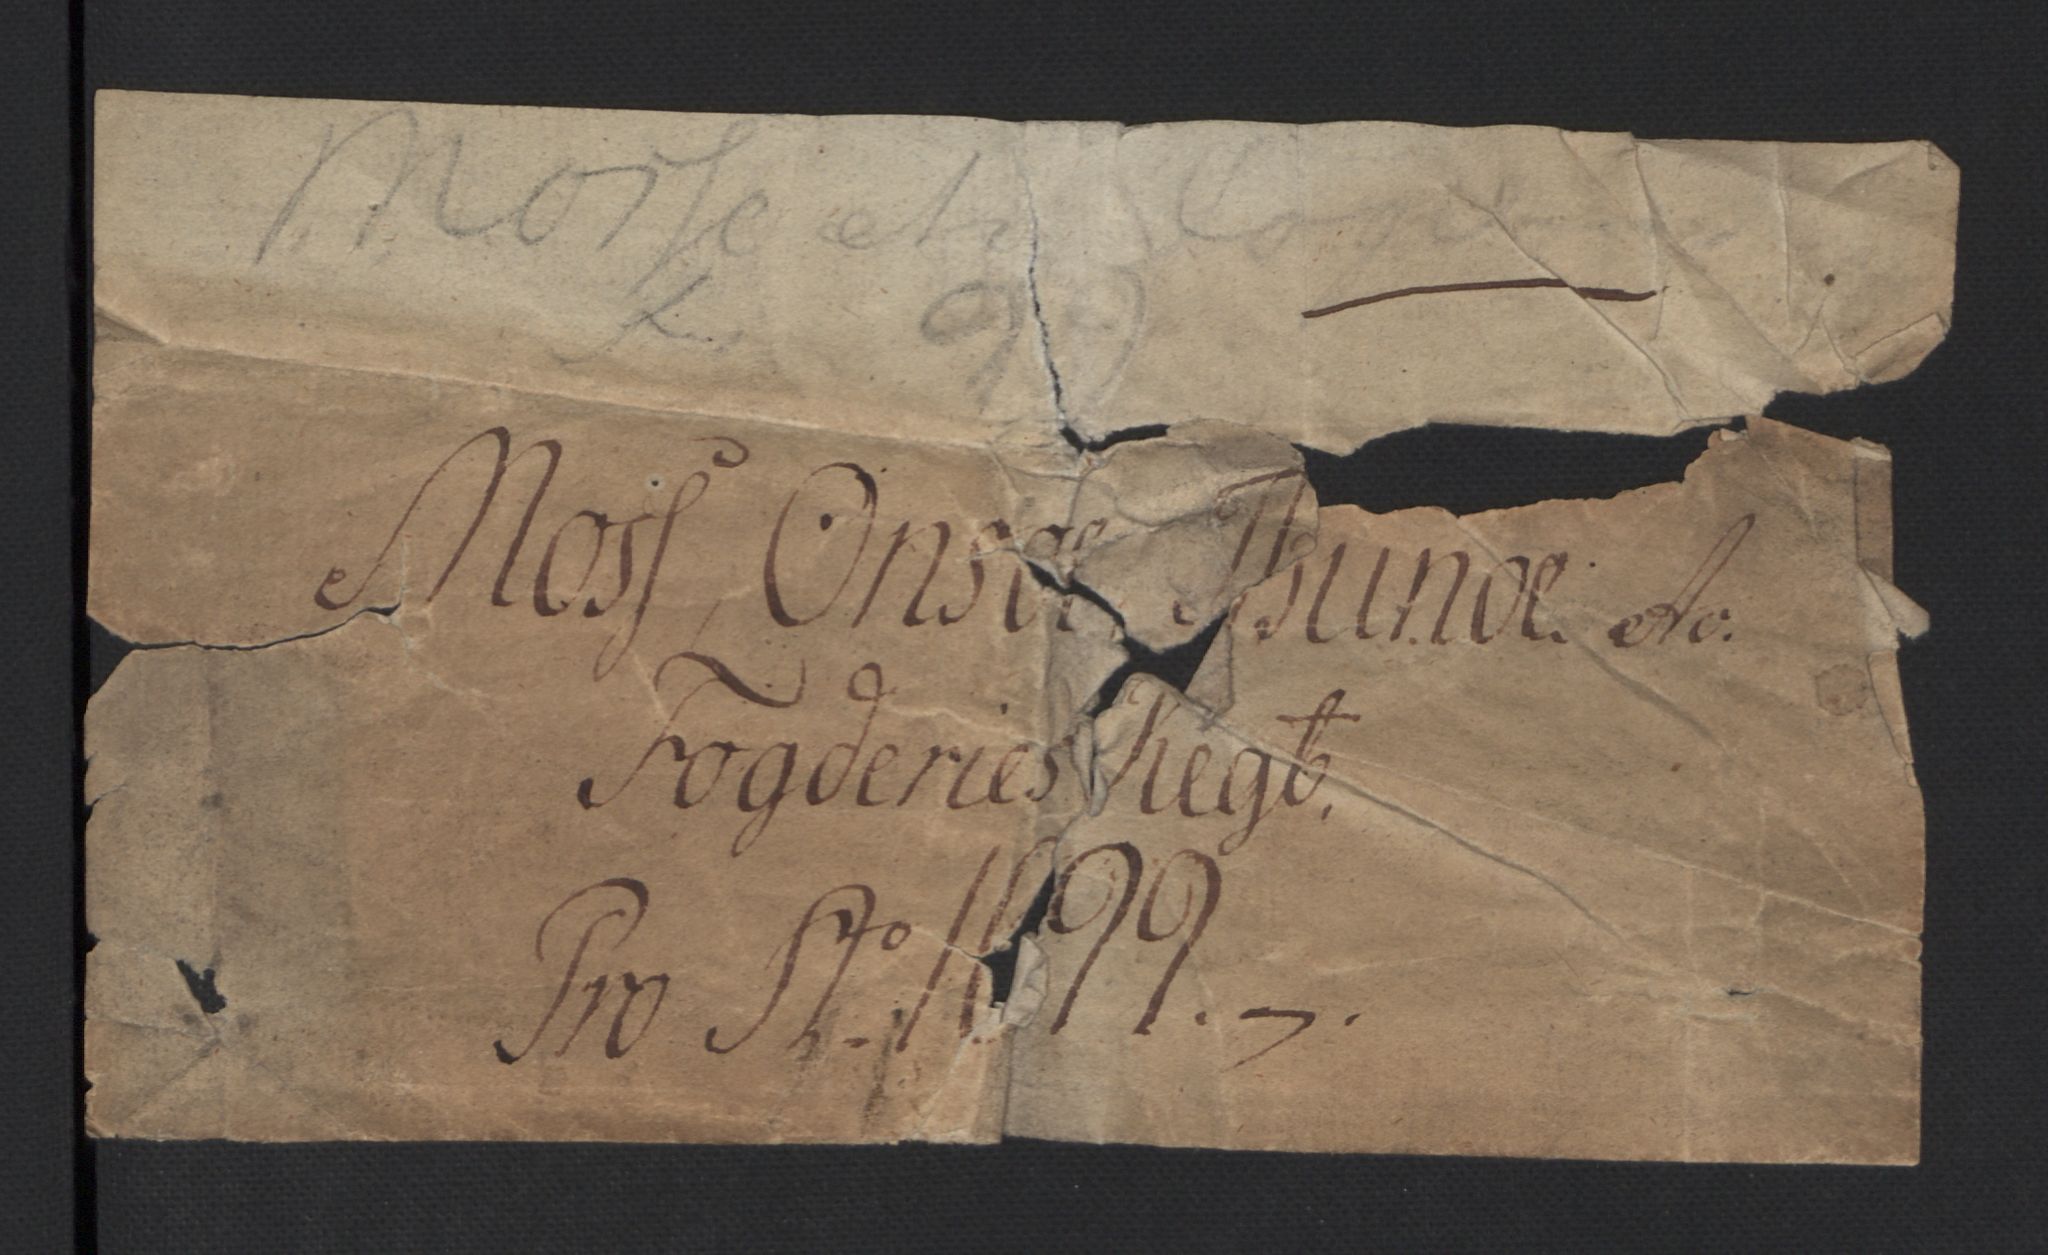 Morse etc
99
Moss, Onsøe Thunøe etc.
Fogderies Regb.
Pro Ao. 1699.